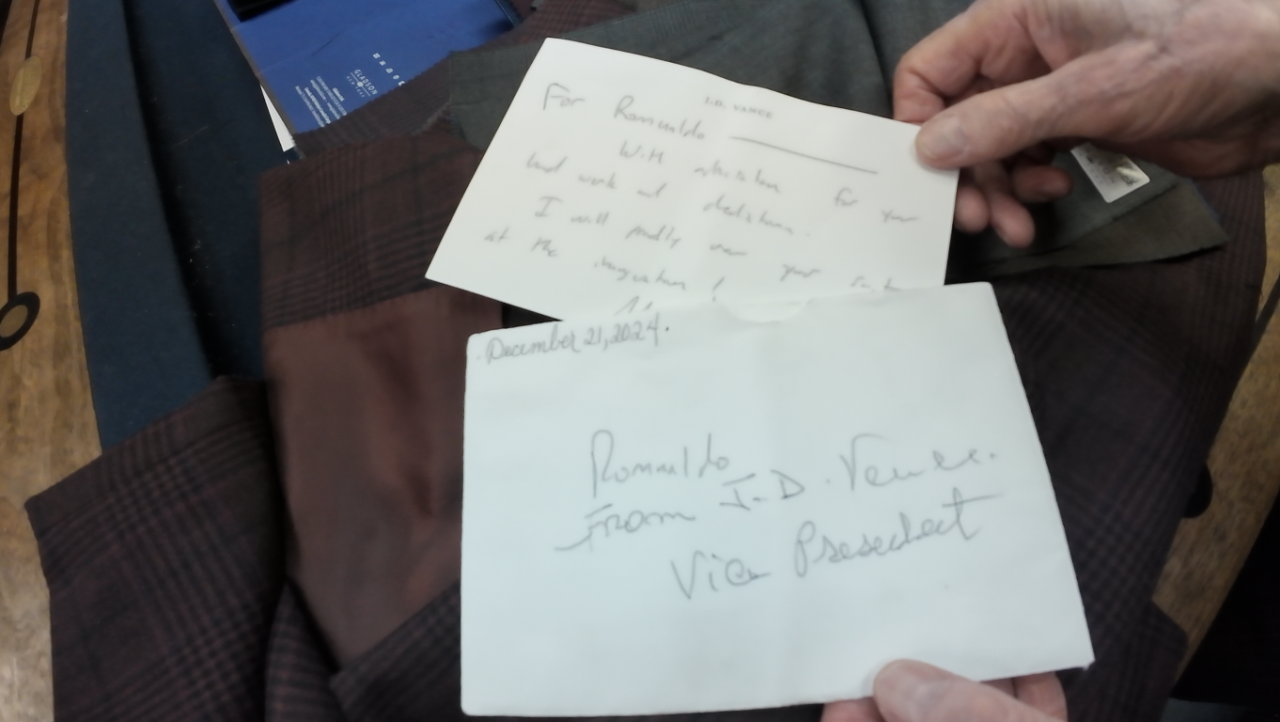 GLADSON
J.D. VANCE
For Romualdo
With admiration for your
hard work and dedication.
I will proudly wear your
at the inauguration!
December 21, 2024.
Romualdo
From J.D. Vance.
Vice Presedect